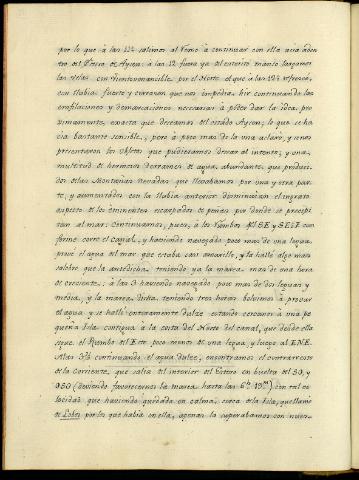 por lo que à las 11½ salimos al Remo à continuar con ella acia aden
tro del Estero de Aysen: a las 12 fuera ya del estrecho mando largamos
las velas con Viento bonancible por el Norte el que à las 12½ refrescó,
con lluvia fuerte y cerrazon que nos impedia hir continuando las
enfilaciones y demarcaciones necesarias à poder dar la idea pro
ximamente, exacta que deseamos del estado Aysen; lo que se ha
cia bastante sensible, pero à poco mas de la una aclaró, y senos
presentaron los obgetos que pudieramos desear al intento; y una
multitud de hermosos derrames de agua abundante, que produci
dos delas Montañas nevadas que llevabamos por una y otra par
te, y aumentados con la lluvia anterior disminuian el ingrato
aspecto de los eminentes escarpados de peñas por donde se precepi
tan al mar: Continuamos, pues, à los Rumbos del SE y SE¼E con
forme corre el canal, y haviendo navegado poco mas de una legua,
probé el agua del mar que estaba casi amarilla, y la hallé algo mas
salobre que la antedicha, teniendo ya la marea mas de una hora
de creciente: à las 3 haviendo navegado poco mas de dos leguas y
media, y la marea dicha teniendo tres horas bolvimos à provar
el agua y se halló enteramente dulce estando cercanos à una pe
queña Isla contigua à la costa del Norte del canal, que desde ella
sigue el Rumbo del Este poco menos de una legua, y luego al ENE.
A las 3½ continuando el agua dulce, encontramos el contrarresto
de la Corriente, que salia del interior del Estero en buelta del SO, y
OSO (debiendo favorecernos la marea hasta las 6h 19m) con tal ve
locidad que haviendo quedado en calma, cerca de la Isla, que llamé
de Lobos por los que habia en ella, apenas la superabamos con nues-